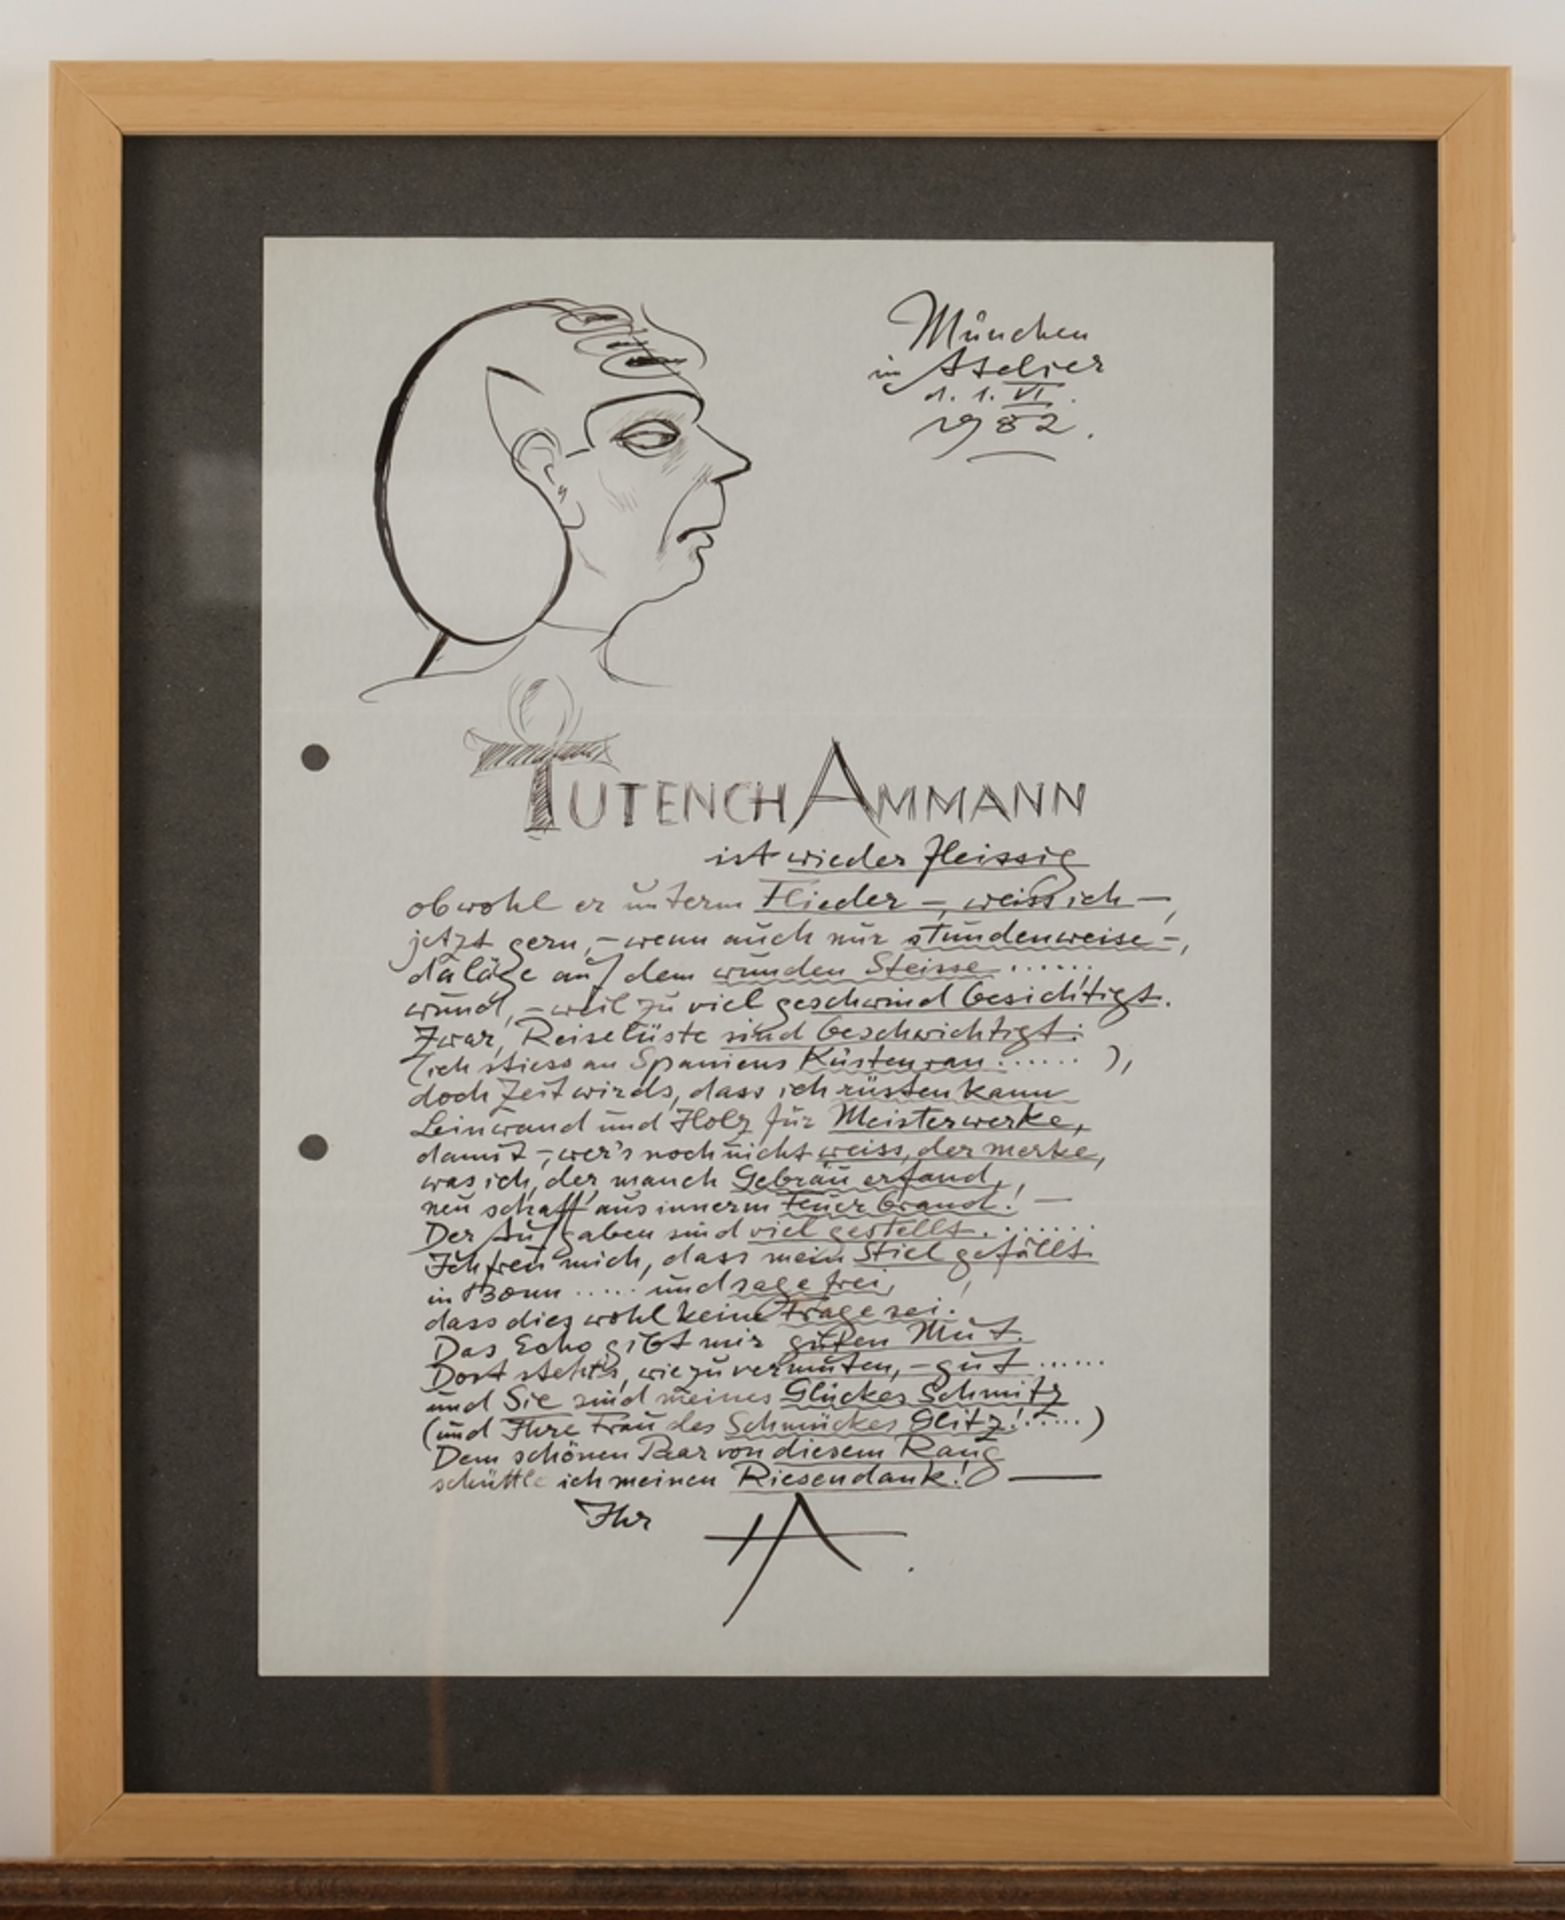 München
im Atelier
d. 1. VI.
1982.
TUTENCHAMMANN
ist wieder fleissig
obwohl er unterm Flieder –, weiss ich –,
jetzt gern, – wenn auch nur stundenweise –,
daläge auf dem wunden Steisse ......
wund, – weil zu viel geschwind besichtigt.
Zwar, Reiselüste sind beschwichtigt:
(ich stiess an Spaniens Küsten ran ...... ),
doch Zeit wirds, dass ich rüsten kann
Leinwand und Holz für Meisterwerke,
damit –, wer's noch nicht weiss, der merke,
was ich, der manch Gebräu erfand,
neu schaff' aus innerm Feuerbrand! –
Der Aufgaben sind viel gestellt. ......
Ich freu mich, dass mein Stiel gefällt
in Bonn ..... und sage frei,
dass dies wohl keine Frage sei.
Das Echo gibt mir guten Mut.
Dort steht's, wie zu vermuten, – gut ......
und Sie sind meines Glückes Schmitz
(und Ihre Frau des Schmuckes Glitz! ..... )
Dem schönen Paar von diesem Rang
schüttle ich meinen Riesendank! –
Ihr HA.